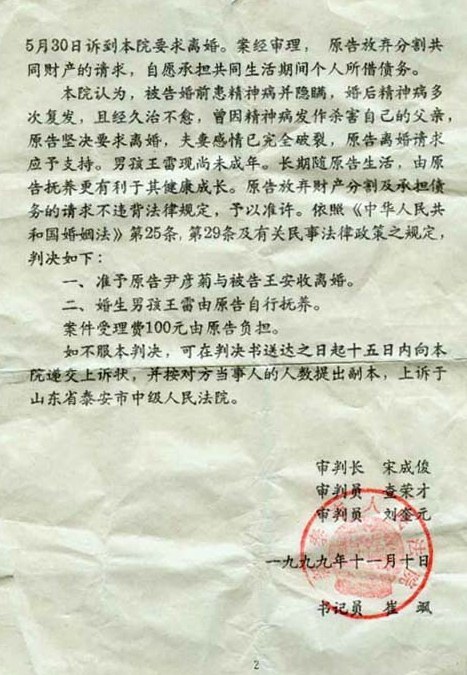 5月30日诉到本院要求离婚。案经审理， 原告放弃分割共
同财产的请求，自愿承担共同生活期间个人所借债务。
本院认为，被告婚前患精神病并隐瞒，婚后精神病多
次复发，且经久治不愈，曾因精神病发作杀害自己的父亲，
原告坚决要求离婚，夫妻感情已完全破裂，原告离婚请求
应予支持。男孩王雷现尚未成年。长期随原告生活，由原
告抚养更有利于其健康成长。原告放弃财产分割及承担债
务的请求不违背法律规定，予以准许。依照《中华人民共
和国婚姻法》第25条，第29条及有关民事法律政策之规定，
判决如下：
一、准予原告尹彦菊与被告王安收离婚。
二、婚生男孩王雷由原告自行抚养。
案件受理费100元由原告负担。
如不服本判决，可在判决书送达之日起十五日内向本
院递交上诉状，并按对方当事人的人数提出副本，上诉于
山东省泰安市中级人民法院。
审判长 宋成俊
审判员 查荣才
审判员 刘奎元
一九九九年十一月十日
书记员 崔 飒
2